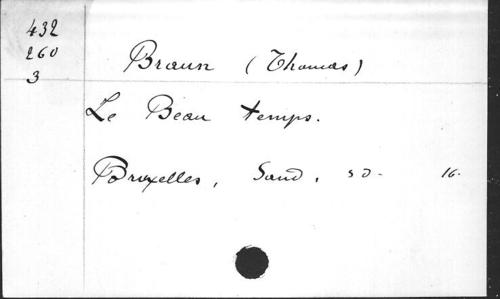 432
260
3
Braun (Thomas)
Le Beau temps.
Bruxelles, Sand, s d. 16.